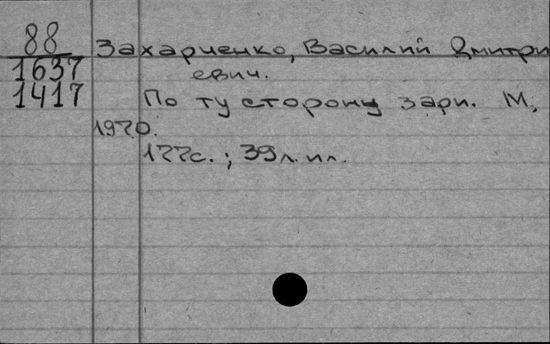 88 Захарченко, Василий Дмитри
1637 евич.
1417 По ту сторону зари. М,
1970.
177с.; 39л. ил.